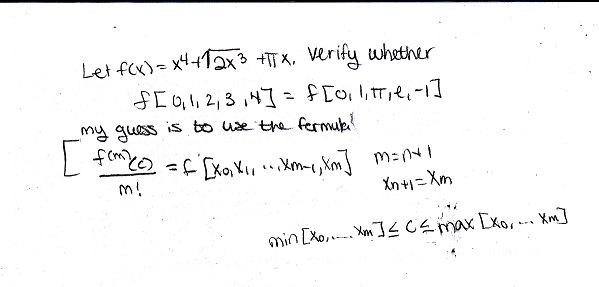 Let f(x) = x⁴ + √2x³ + πx. Verify whether
f[0,1,2,3,4] = f[0,1,π,e,-1]
my guess is to use the formula!
[ f^(m)(c) / m! = f[x₀,x₁, ..., x_{m-1}, x_m]  m=n+1
x_{n+1} = x_m
min[x₀,.... x_m] ≤ c ≤ max[x₀,... x_m]